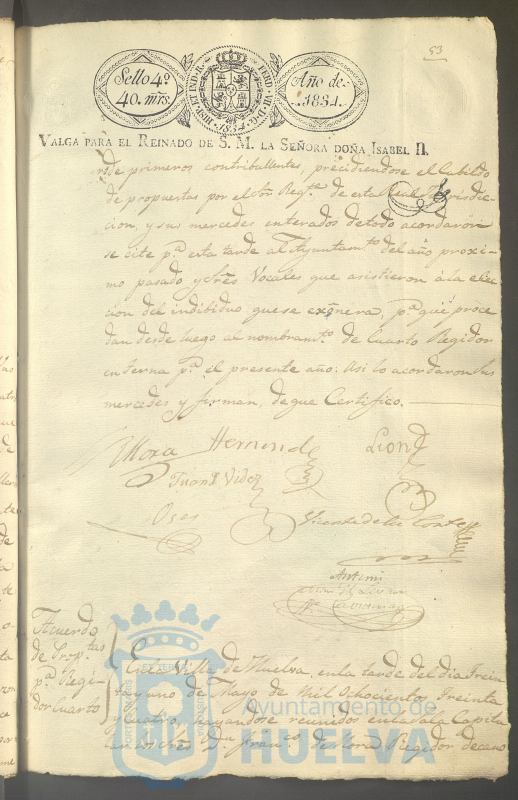 53
Sello 4.º
40. mrs.
HISP. ET IND. R.
FERD. VII. D. G.
Año de
1834.
VALGA PARA EL REINADO DE S. M. LA SEÑORA DOÑA ISABEL II.
de primeros contribullentes, precidiendose el Cabildo
de propuestas por el Sor. Reg.te de esta Real Jurisdic-
cion, y sus mercedes enterados de todo acordaron
se cite p.a esta tarde al Ayuntam.to del año proxi-
mo pasado y tres Vocales que asistieron á la elec-
cion del indibiduo que se exônera, p.a que proce
dan desde luego al nombram.to de Cuarto Regidor
en terna p.a el presente año: Asi lo acordaron sus
mercedes y firman, de que Certifico.
Mora Hernend. Leon
Juan Videz
Oses Vicente de la Corte
Antoni
Acuerdo
de Prop.tas
p.a Regi-
dor Cuarto
En la Villa de Huelva, en la tarde del dia Trein
ta y uno de Mayo de mil Ochocientos Treinta
y cuatro, hayandose reunidos en la Sala Capitu
lar los Sres. D.n Fran.co de Mora Regidor decano
Ayuntamiento de
HUELVA